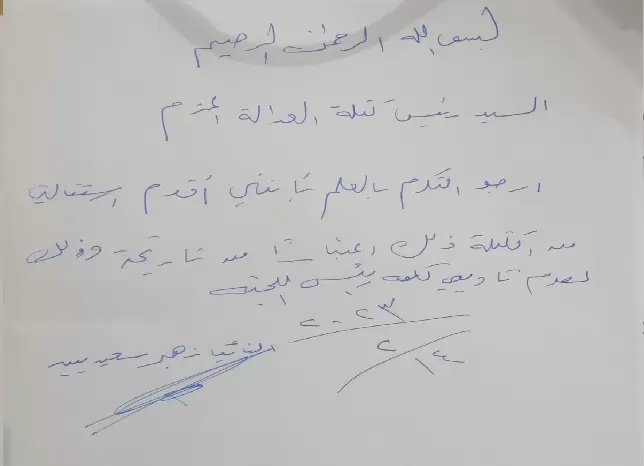 بسم الله الرحمن الرحيم
السيد رئيس كتلة العدالة المحترم
ارجو التكرم بالعلم بإنني أقدم استقالتي
من الكتلة وذلك اعتباراً من تاريخه وذلك
لعدم كلمة رئيس اللجنة
٢٠٢٣
النائب زهير سعيد